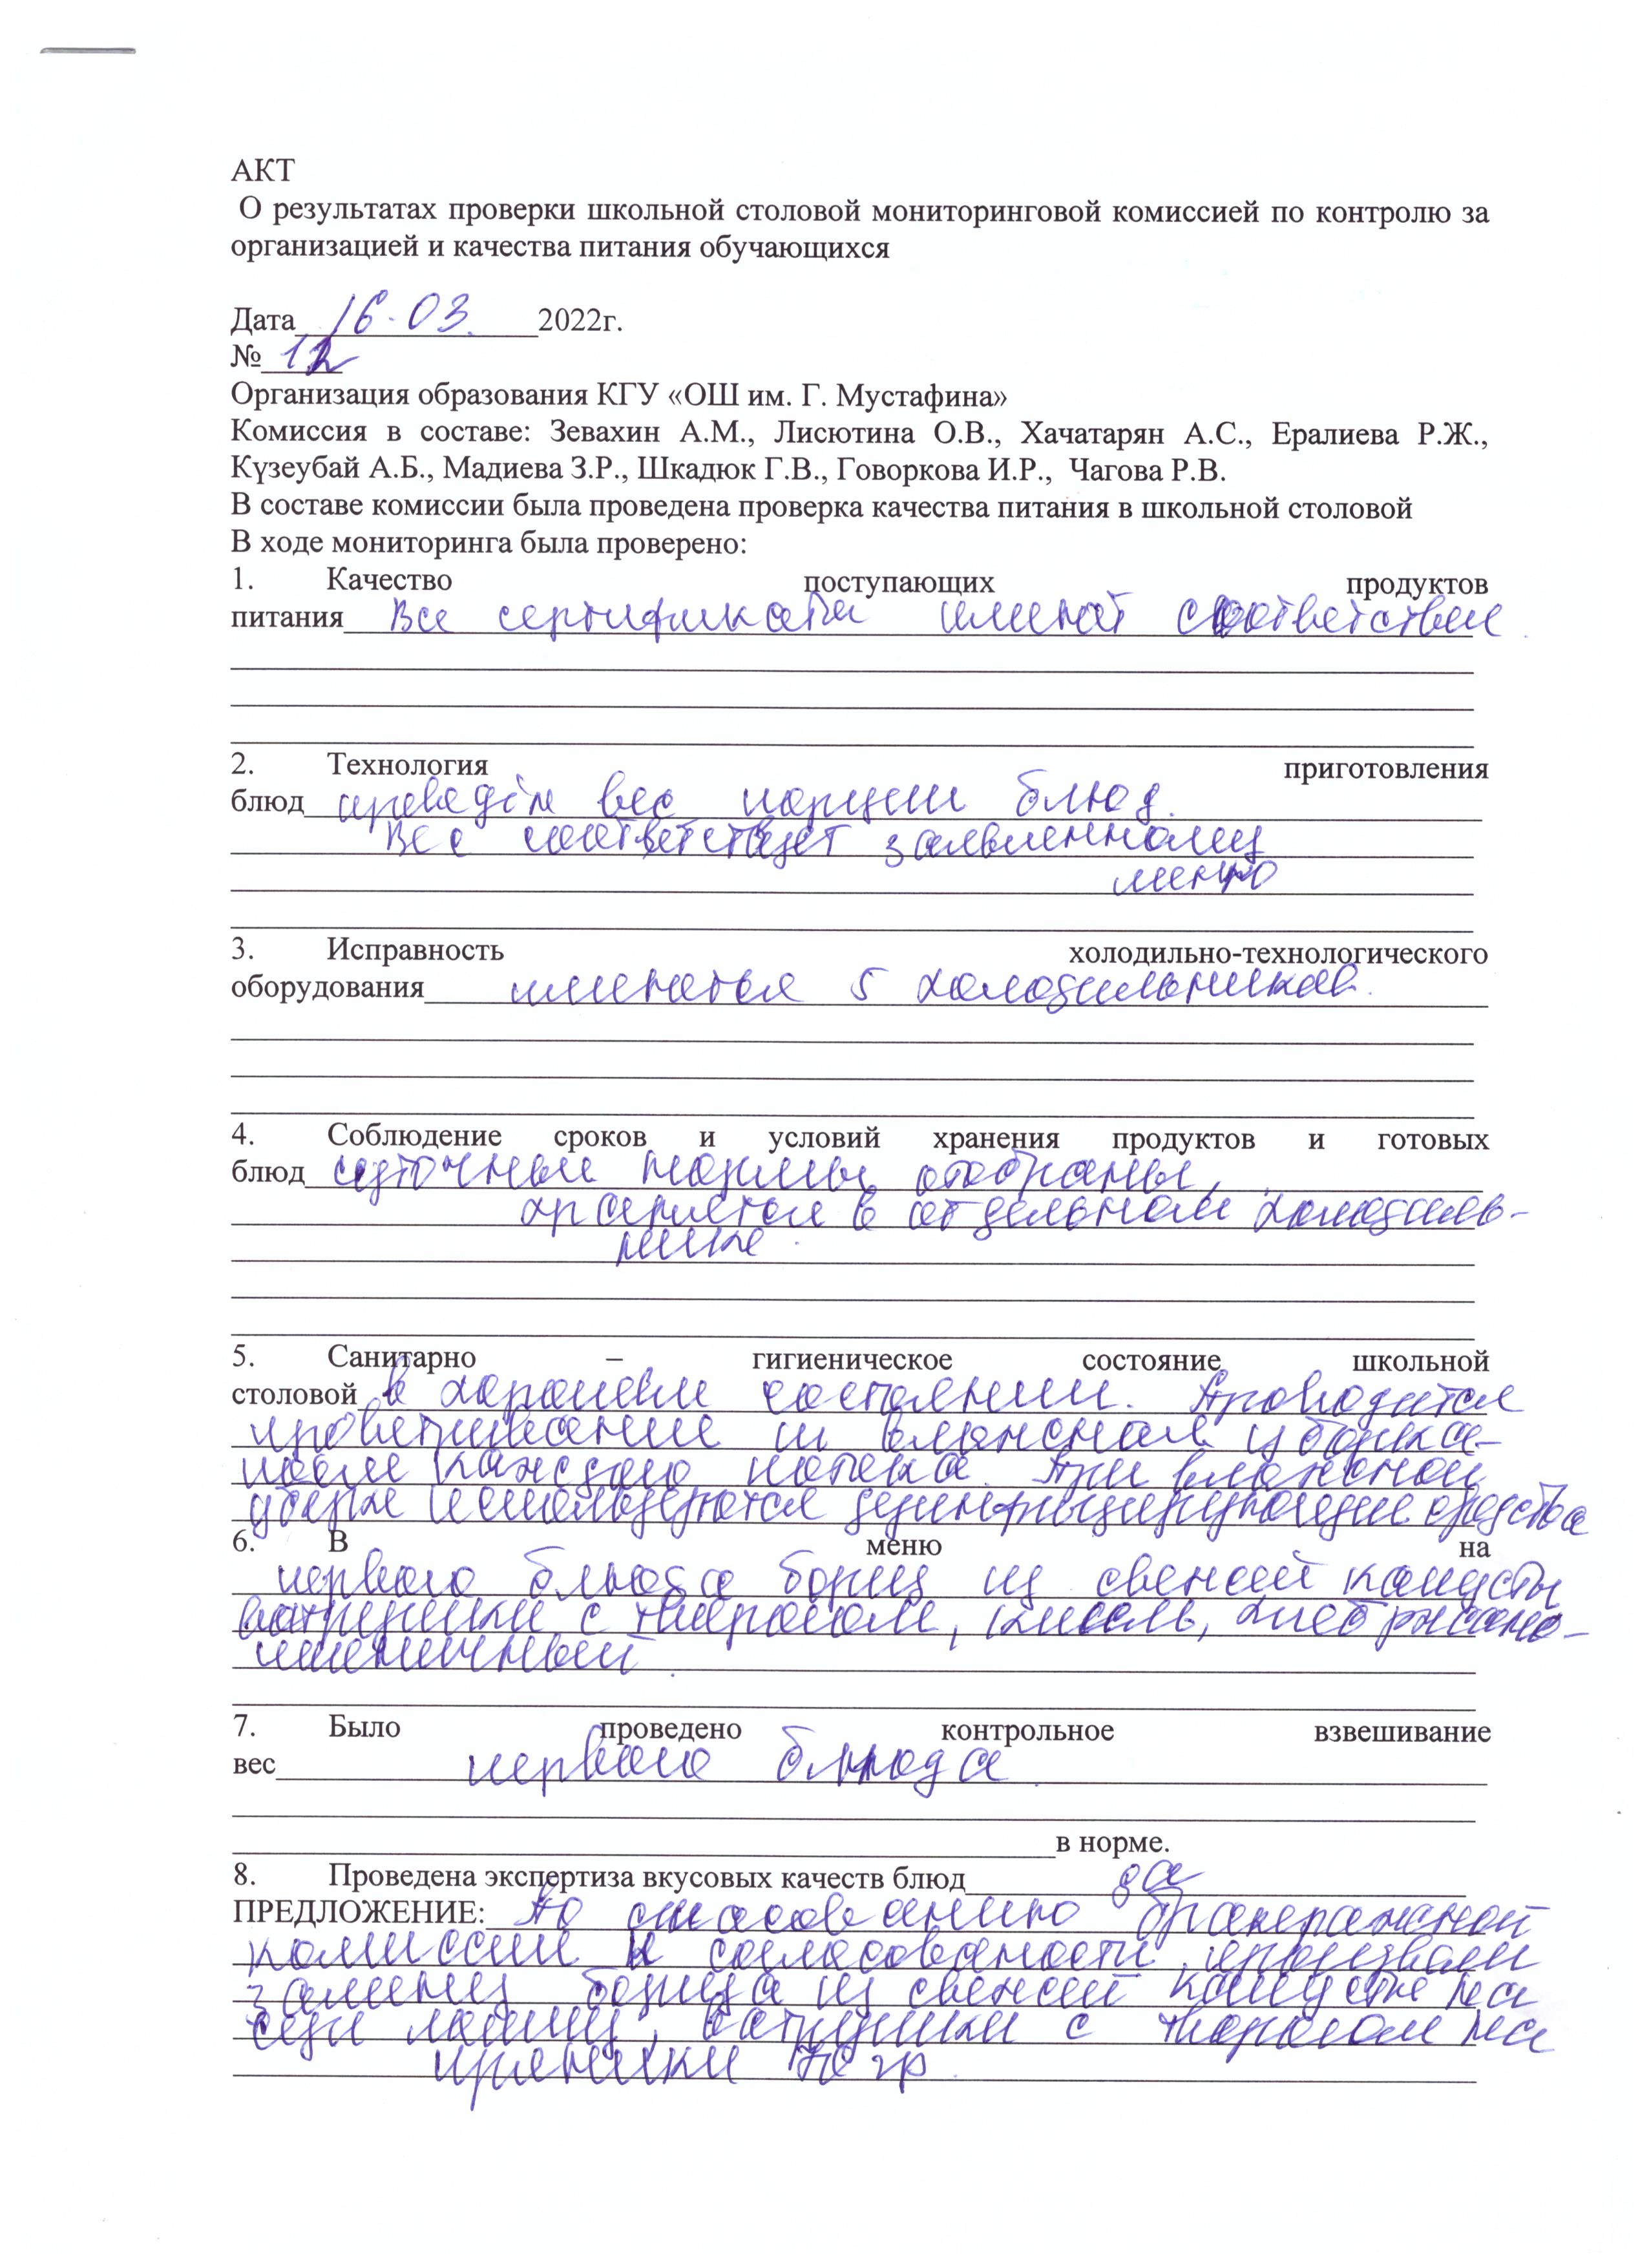 АКТ
О результатах проверки школьной столовой мониторинговой комиссией по контролю за
организацией и качества питания обучающихся
Дата 16.03. 2022г.
№ 12
Организация образования КГУ «ОШ им. Г. Мустафина»
Комиссия в составе: Зевахин А.М., Лисютина О.В., Хачатарян А.С., Ералиева Р.Ж.,
Күзеубай А.Б., Мадиева З.Р., Шкадюк Г.В., Говоркова И.Р., Чагова Р.В.
В составе комиссии была проведена проверка качества питания в школьной столовой
В ходе мониторинга была проверено:
1. Качество поступающих продуктов
питания Все сертификаты имеют соответствие.
2. Технология приготовления
блюд проведён вес порции блюд.
Вес соответствует заявленному
меню
3. Исправность холодильно-технологического
оборудования имеется 5 холодильников.
4. Соблюдение сроков и условий хранения продуктов и готовых
блюд суточные отобраны,
хранятся в отдельном холодиль-
нике.
5. Санитарно – гигиеническое состояние школьной
столовой в хорошем состоянии. Проводится
проветривание и влажная уборка
после каждого потока. При влажной
уборке используются дезинфицирующие средства
6. В меню на
первого блюда борщ из свежей капусты
ватрушки с творогом, кисель, хлеб ржано-
пшеничный.
7. Было проведено контрольное взвешивание
вес первого блюда.
в норме.
8. Проведена экспертиза вкусовых качеств блюд да
ПРЕДЛОЖЕНИЕ: По согласованию бракеражной
комиссии произвели
замену борща из свежей капусты на
суп лапшу, ватрушки с творогом на
пряники 70 гр.